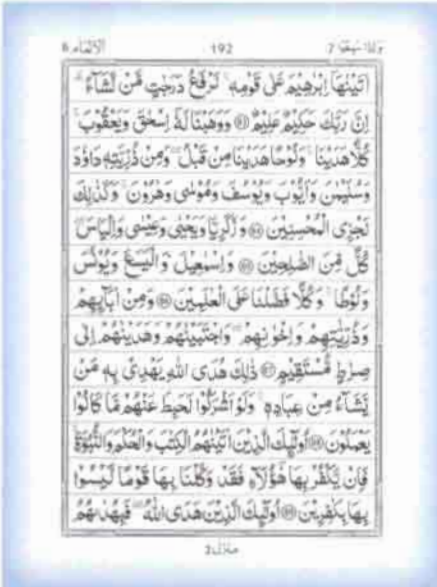 الانعام ٦ 192 واذا سمعوا ٧
اٰتَيْنٰهَاۤ اِبْرٰهِيْمَ عَلٰى قَوْمِهٖ ؕ نَرْفَعُ دَرَجٰتٍ مَّنْ نَّشَآءُ ؕ
اِنَّ رَبَّكَ حَكِيْمٌ عَلِيْمٌ ۝ وَوَهَبْنَا لَهٗۤ اِسْحٰقَ وَيَعْقُوْبَ ؕ
كُلًّا هَدَيْنَا ۚ وَنُوْحًا هَدَيْنَا مِنْ قَبْلُ وَمِنْ ذُرِّيَّتِهٖ دَاوٗدَ
وَسُلَيْمٰنَ وَاَيُّوْبَ وَيُوْسُفَ وَمُوْسٰى وَهٰرُوْنَ ؕ وَكَذٰلِكَ
نَجْزِى الْمُحْسِنِيْنَ ۝ وَزَكَرِيَّا وَيَحْيٰى وَعِيْسٰى وَاِلْيَاسَ ؕ
كُلٌّ مِّنَ الصّٰلِحِيْنَ ۝ وَاِسْمٰعِيْلَ وَالْيَسَعَ وَيُوْنُسَ
وَلُوْطًا ؕ وَكُلًّا فَضَّلْنَا عَلَى الْعٰلَمِيْنَ ۝ وَمِنْ اٰبَآئِهِمْ
وَذُرِّيّٰتِهِمْ وَاِخْوَانِهِمْ ۚ وَاجْتَبَيْنٰهُمْ وَهَدَيْنٰهُمْ اِلٰى
صِرَاطٍ مُّسْتَقِيْمٍ ۝ ذٰلِكَ هُدَى اللّٰهِ يَهْدِىْ بِهٖ مَنْ
يَّشَآءُ مِنْ عِبَادِهٖ ؕ وَلَوْ اَشْرَكُوْا لَحَبِطَ عَنْهُمْ مَّا كَانُوْا
يَعْمَلُوْنَ ۝ اُولٰٓئِكَ الَّذِيْنَ اٰتَيْنٰهُمُ الْكِتٰبَ وَالْحُكْمَ وَالنُّبُوَّةَ ۚ
فَاِنْ يَّكْفُرْ بِهَا هٰۤؤُلَآءِ فَقَدْ وَكَّلْنَا بِهَا قَوْمًا لَّيْسُوْا
بِهَا بِكٰفِرِيْنَ ۝ اُولٰٓئِكَ الَّذِيْنَ هَدَى اللّٰهُ فَبِهُدٰىهُمُ
منزل ٢